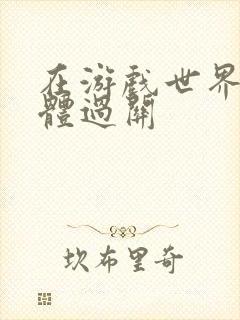 在游戏世界
體過關
坎布里奇